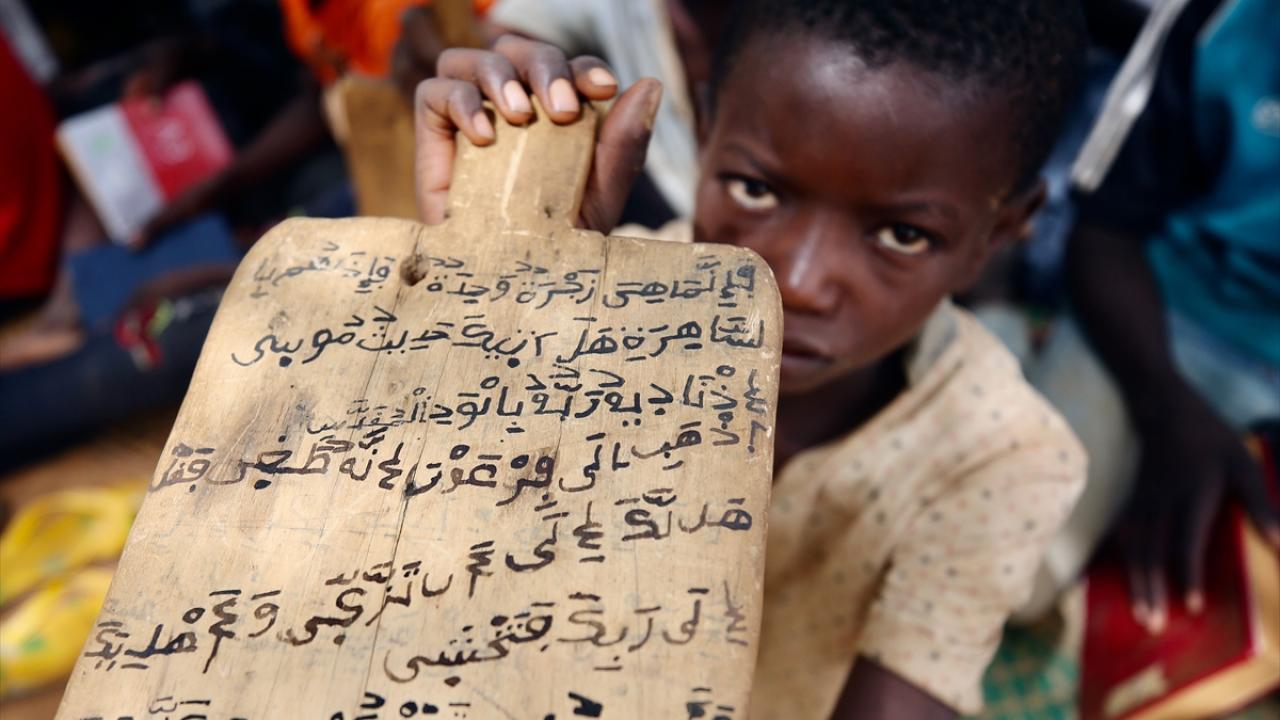 فَإِنَّمَا هِيَ زَجْرَةٌ وَحِدَةٌ فَإِذَا هُم بِا
لسَّاهِرَةِ هَلْ أَتِيكَ حَدِيثُ مُوسِى
إِذْ نَادِيهُ رَبُّهُ بِالْوَادِ الْمُقَدَّسِ
طُوِى اذْهَبِ الَى فِرْعَوْنَ إِنَّهُ طَغِى فَقُلْ
هَل لَّكَ إِلَى أَن تَزَّكِّى وَأَهْدِيَكَ
إِلَى رَبِّكَ فَتَخْشِى